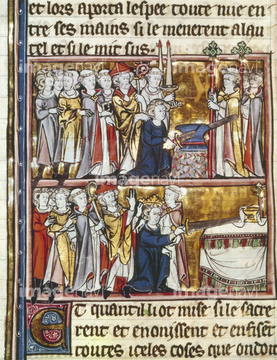 et lors aporta lespee toute nue en
tre ses mains si le menerent al au
tel et si le mit sus
Et quant il i ot mise si le sacre
rent et enoinsent et en fiset
toutes iceles coses que on dou